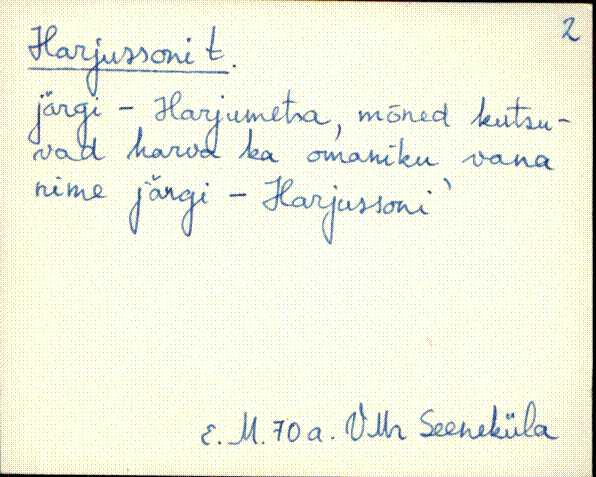 2
Harjussoni t.
järgi - Harjumetsa, mõned kutsu-
vad harva ka omaniku vana
nime järgi - Harjussoni'
E. M. 70 a. VMr Seeneküla